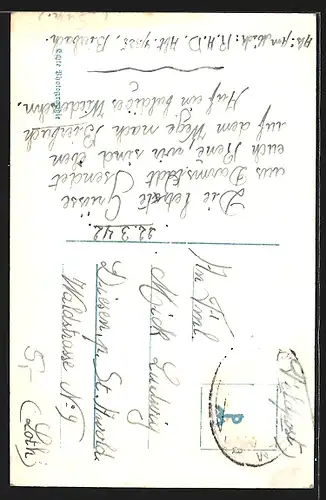 22.3.42
Die letzte Grüsse
aus Darmstadt sendet
euch René wir sind eben
auf dem Wege nach Bierbach
Auf ein baldiges Wiedersehn.
R.A.D. Abt. Bierbach.
Echte Photographie
(Feldpost)
An Frl.
Mick Ludwig
Diesen p. St. Avold
Waldstrasse No 9
(Loth)
5,-